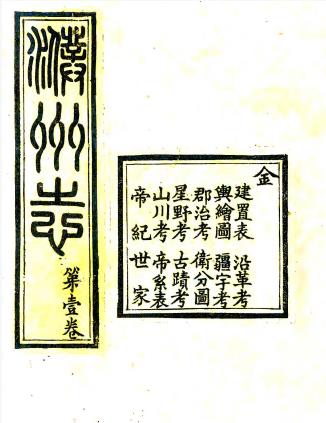 濮州志
第壹卷
金
建置表 沿革考
輿繪圖 疆宇考
郡治考 衛分圖
星野考 古蹟考
山川考 帝系表
帝紀 世家